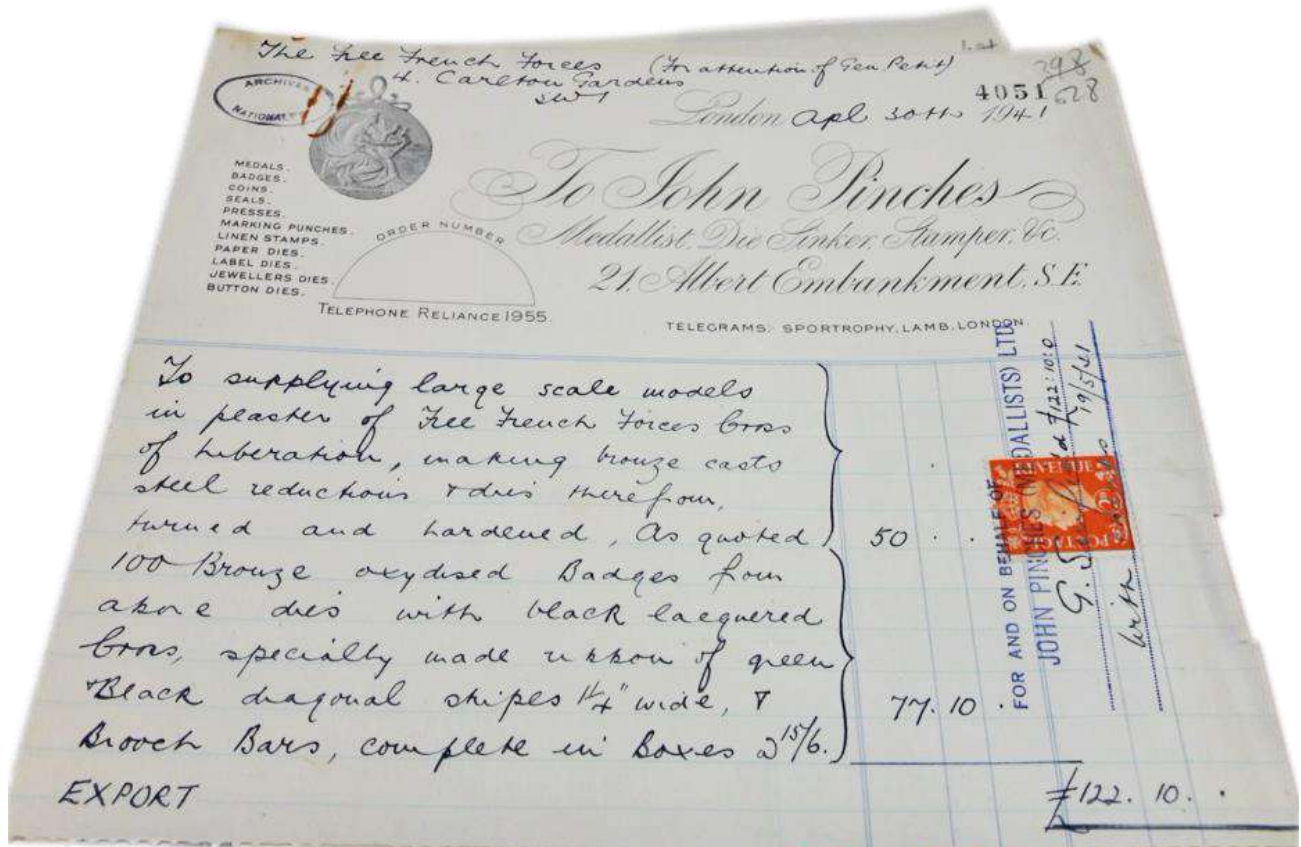 The Free French Forces (For attention of Gen Petit)
4. Carlton Gardens
SW1
ARCHIVES
NATIONALES
398
4051 628
London Apl 30th 1941
To John Pinches
Medallist, Die Sinker, Stamper, &c.
21, Albert Embankment, S.E.
MEDALS.
BADGES.
COINS.
SEALS.
PRESSES.
MARKING PUNCHES.
LINEN STAMPS.
PAPER DIES.
LABEL DIES.
JEWELLERS DIES.
BUTTON DIES.
ORDER NUMBER
TELEPHONE RELIANCE 1955.
TELEGRAMS: SPORTROPHY, LAMB, LONDON.
To supplying large scale models
in plaster of Free French Forces Cross
of Liberation, making bronze casts
steel reductions & dies therefrom,
turned and hardened, As quoted 50 . .
100 Bronze oxydised Badges from
above dies with black lacquered
Cross, specially made ribbon of green
& Black diagonal stripes 1¼" wide, &
Brooch Bars, complete in Boxes @ 15/6. 77.10 .
EXPORT
£122. 10. .
FOR AND ON BEHALF OF
JOHN PINCHES (MEDALLISTS) LTD
G.
£122:10:0
With
19/5/41
REVENUE
POSTAGE